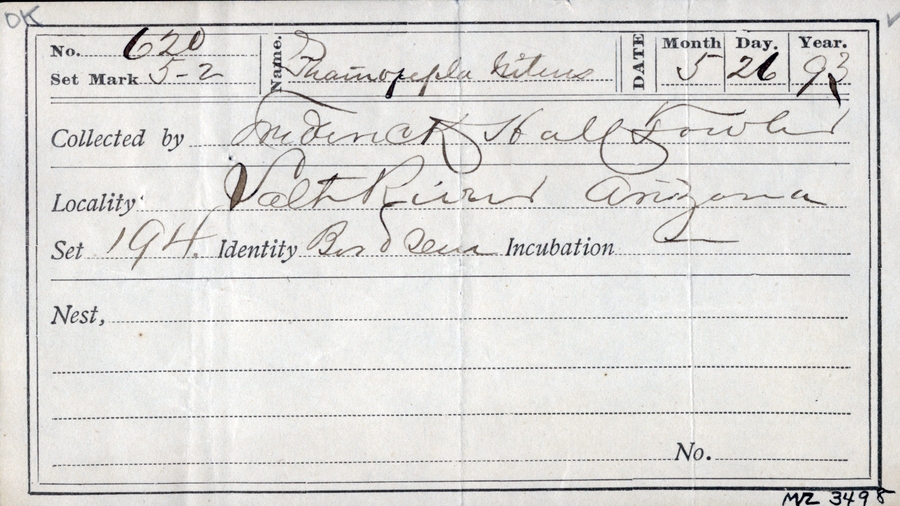 OK
No. 620 Name. Phainopepla Nitens DATE Month Day. Year.
Set Mark 5-2 5 26 93
Collected by Frederick Hall Fowler
Locality Salt River Arizona
Set 194. Identity Bird Seen Incubation —
Nest,
No.
MVZ 3498